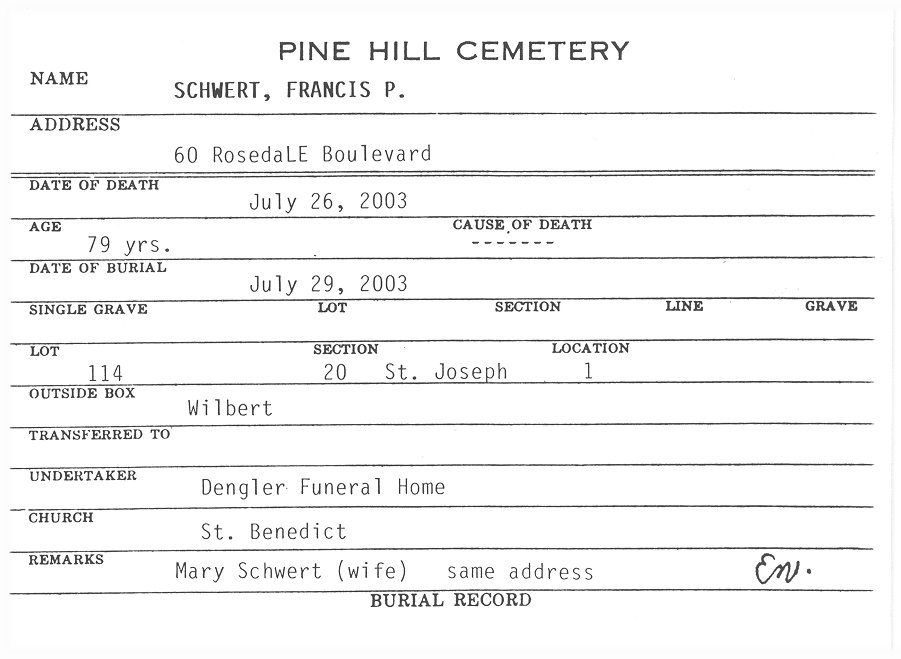 PINE HILL CEMETERY
NAME
SCHWERT, FRANCIS P.
ADDRESS
60 RosedaLE Boulevard
DATE OF DEATH
July 26, 2003
AGE CAUSE OF DEATH
79 yrs. -------
DATE OF BURIAL
July 29, 2003
SINGLE GRAVE LOT SECTION LINE GRAVE
LOT SECTION LOCATION
114 20 St. Joseph 1
OUTSIDE BOX
Wilbert
TRANSFERRED TO
UNDERTAKER
Dengler Funeral Home
CHURCH
St. Benedict
REMARKS
Mary Schwert (wife) same address
BURIAL RECORD